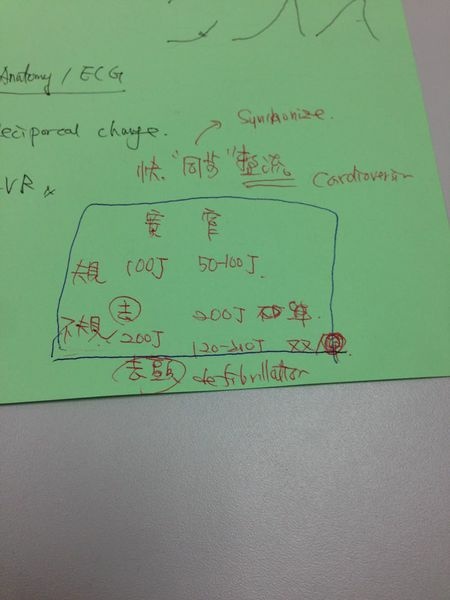 Anatomy / ECG
Synchronize.
eciporcal change.
快."同步"整流。
Cardioversion
VR
寬 窄
規 100J 50-100J.
不規 去 200J 200J 單.
120-200J 双
去顫 defibrillator